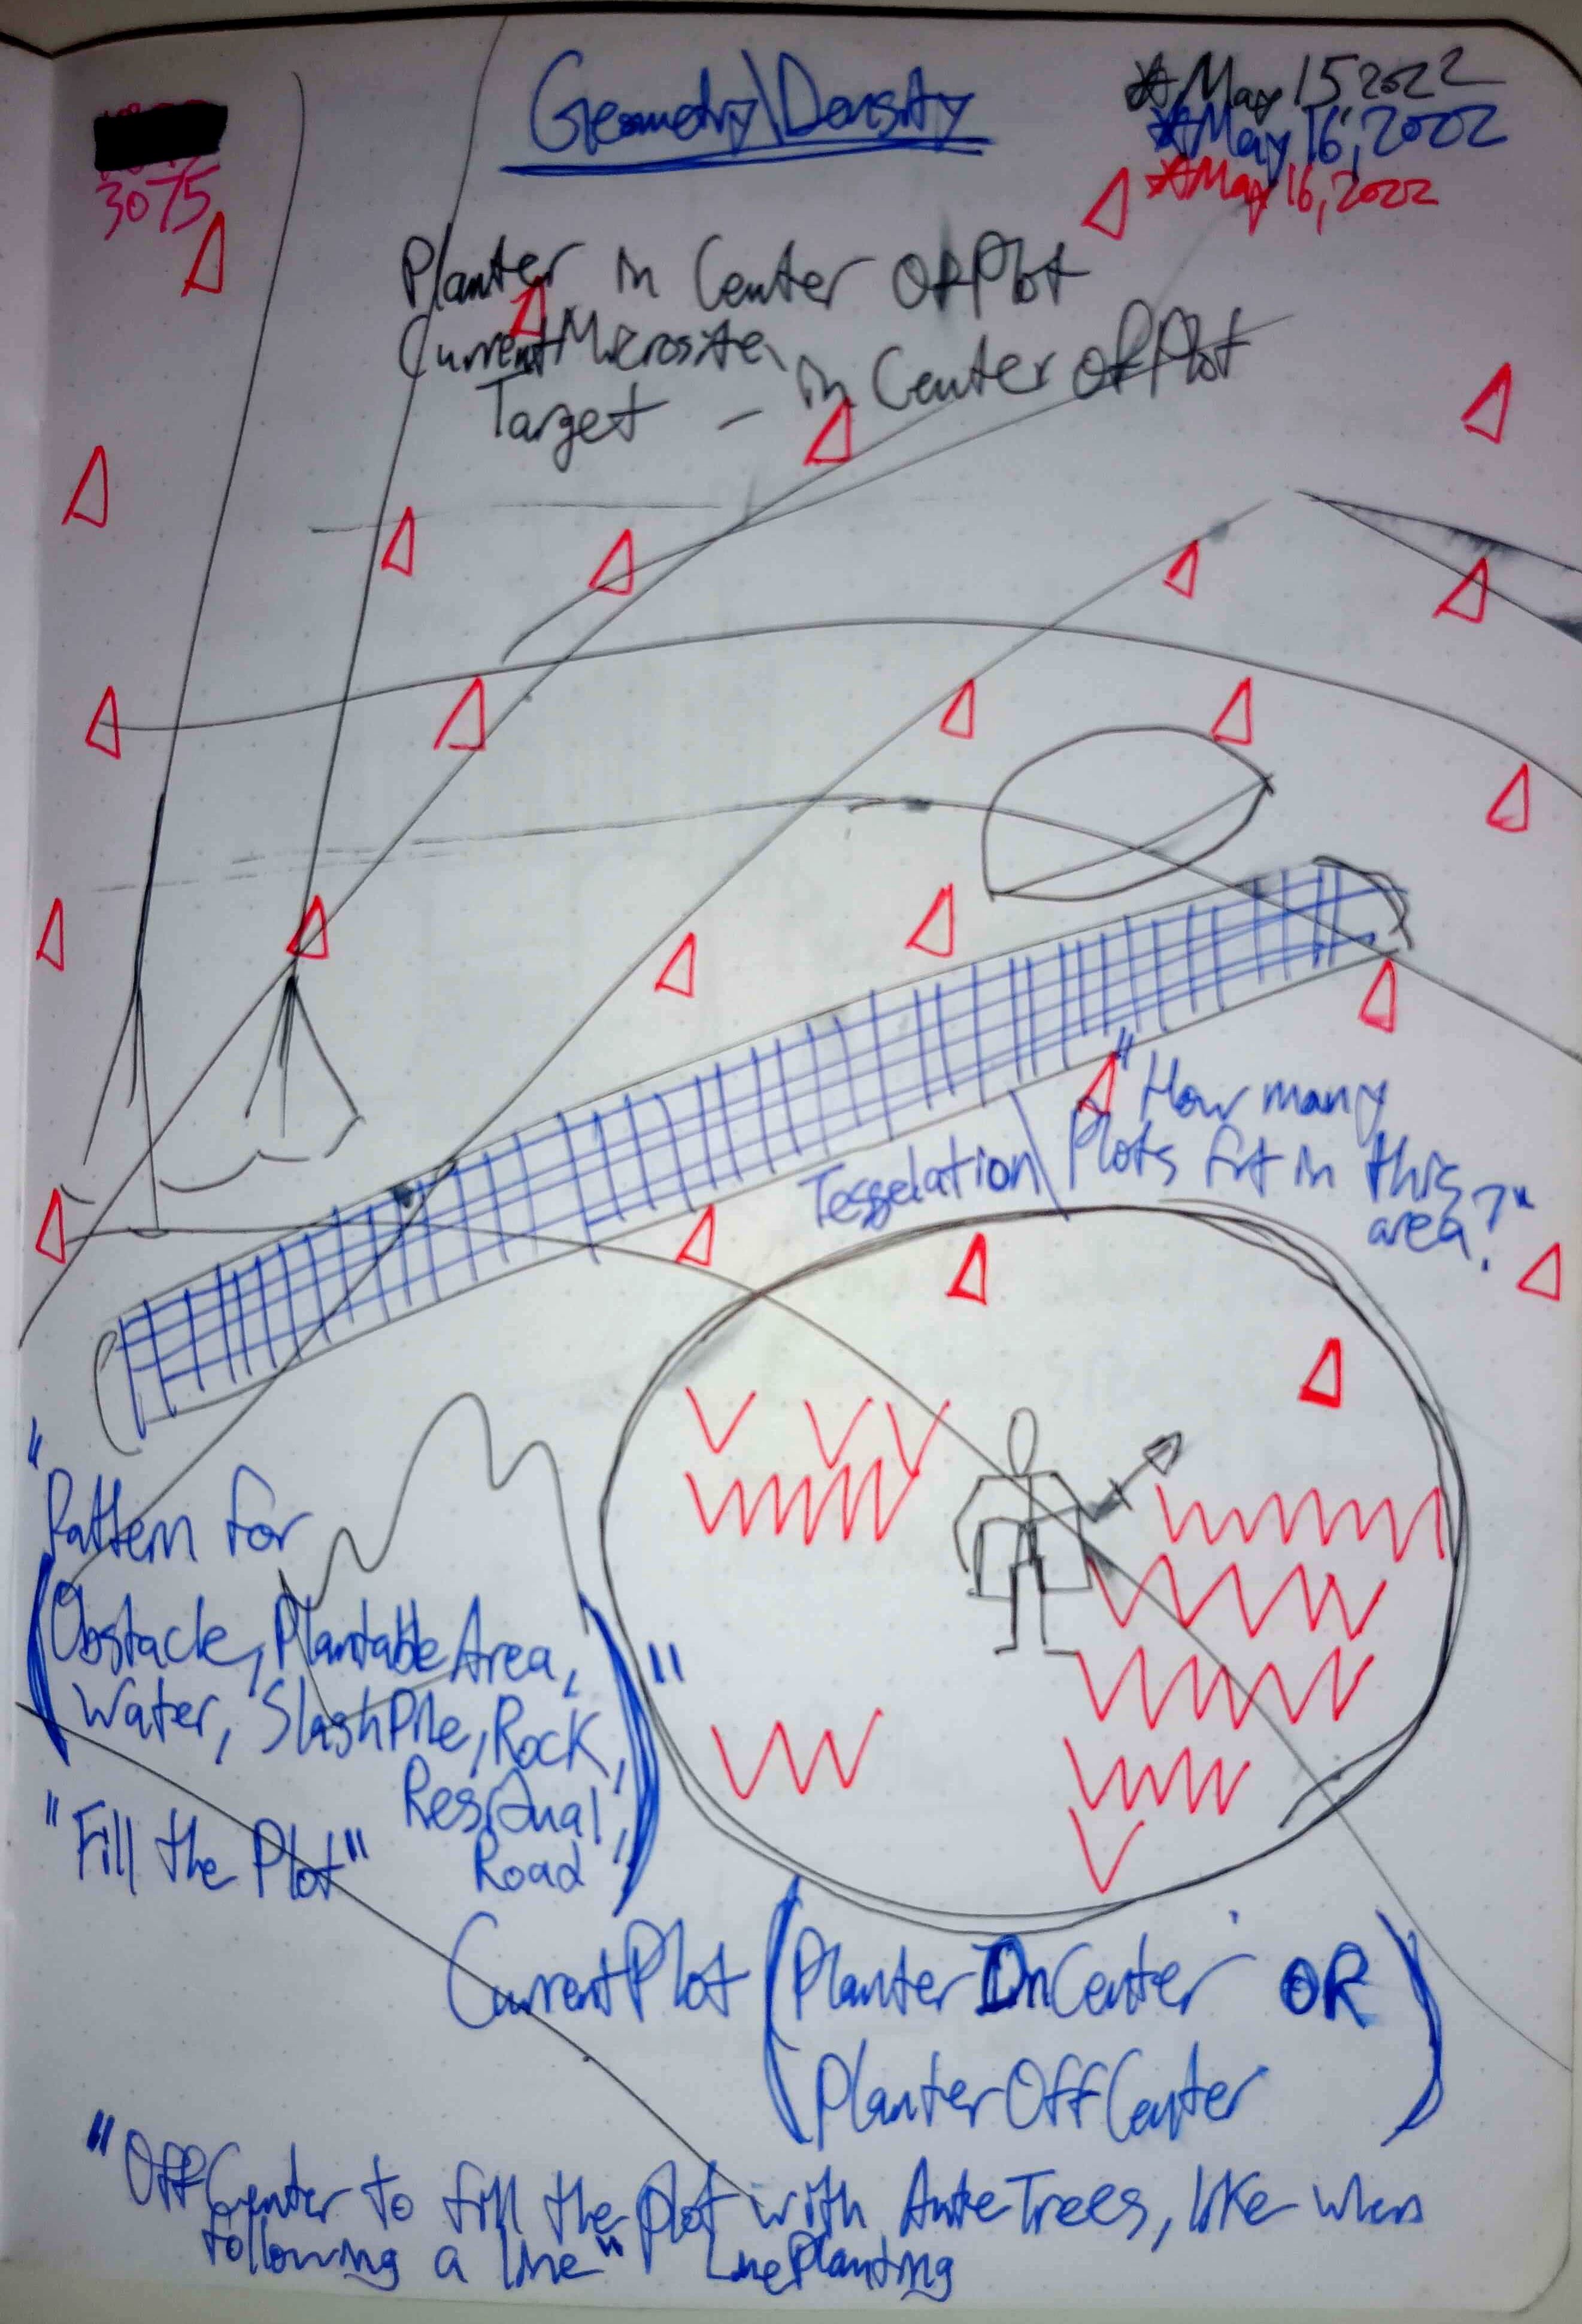 Geometry\Density
☆May 15 2022
☆May 16, 2022
☆May 16, 2022
3075
Planter in Center OfPlot
CurrentMicrosite in Center OfPlot
Target -
"How many
Plots fit in this
area?"
Tesselation
"Pattern for
(Obstacle, PlantableArea,
Water, SlashPile, Rock,
Residual,
Road)"
"Fill the Plot"
CurrentPlot (PlanterInCenter OR
PlanterOffCenter)
"OffCenter to fill the plot with AnteTrees, like when
following a line" LinePlanting